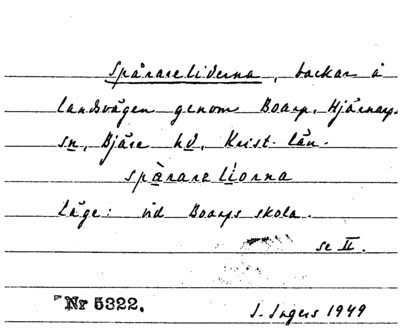 Spårareliderna, backar å
landsvägen genom Boarp, Hjärnarps
sn, Bjäre hd, Krist. län.
spàrarelíorna
Läge: vid Boarps skola.
se II.
Nr 5322.
I. Ingers 1949